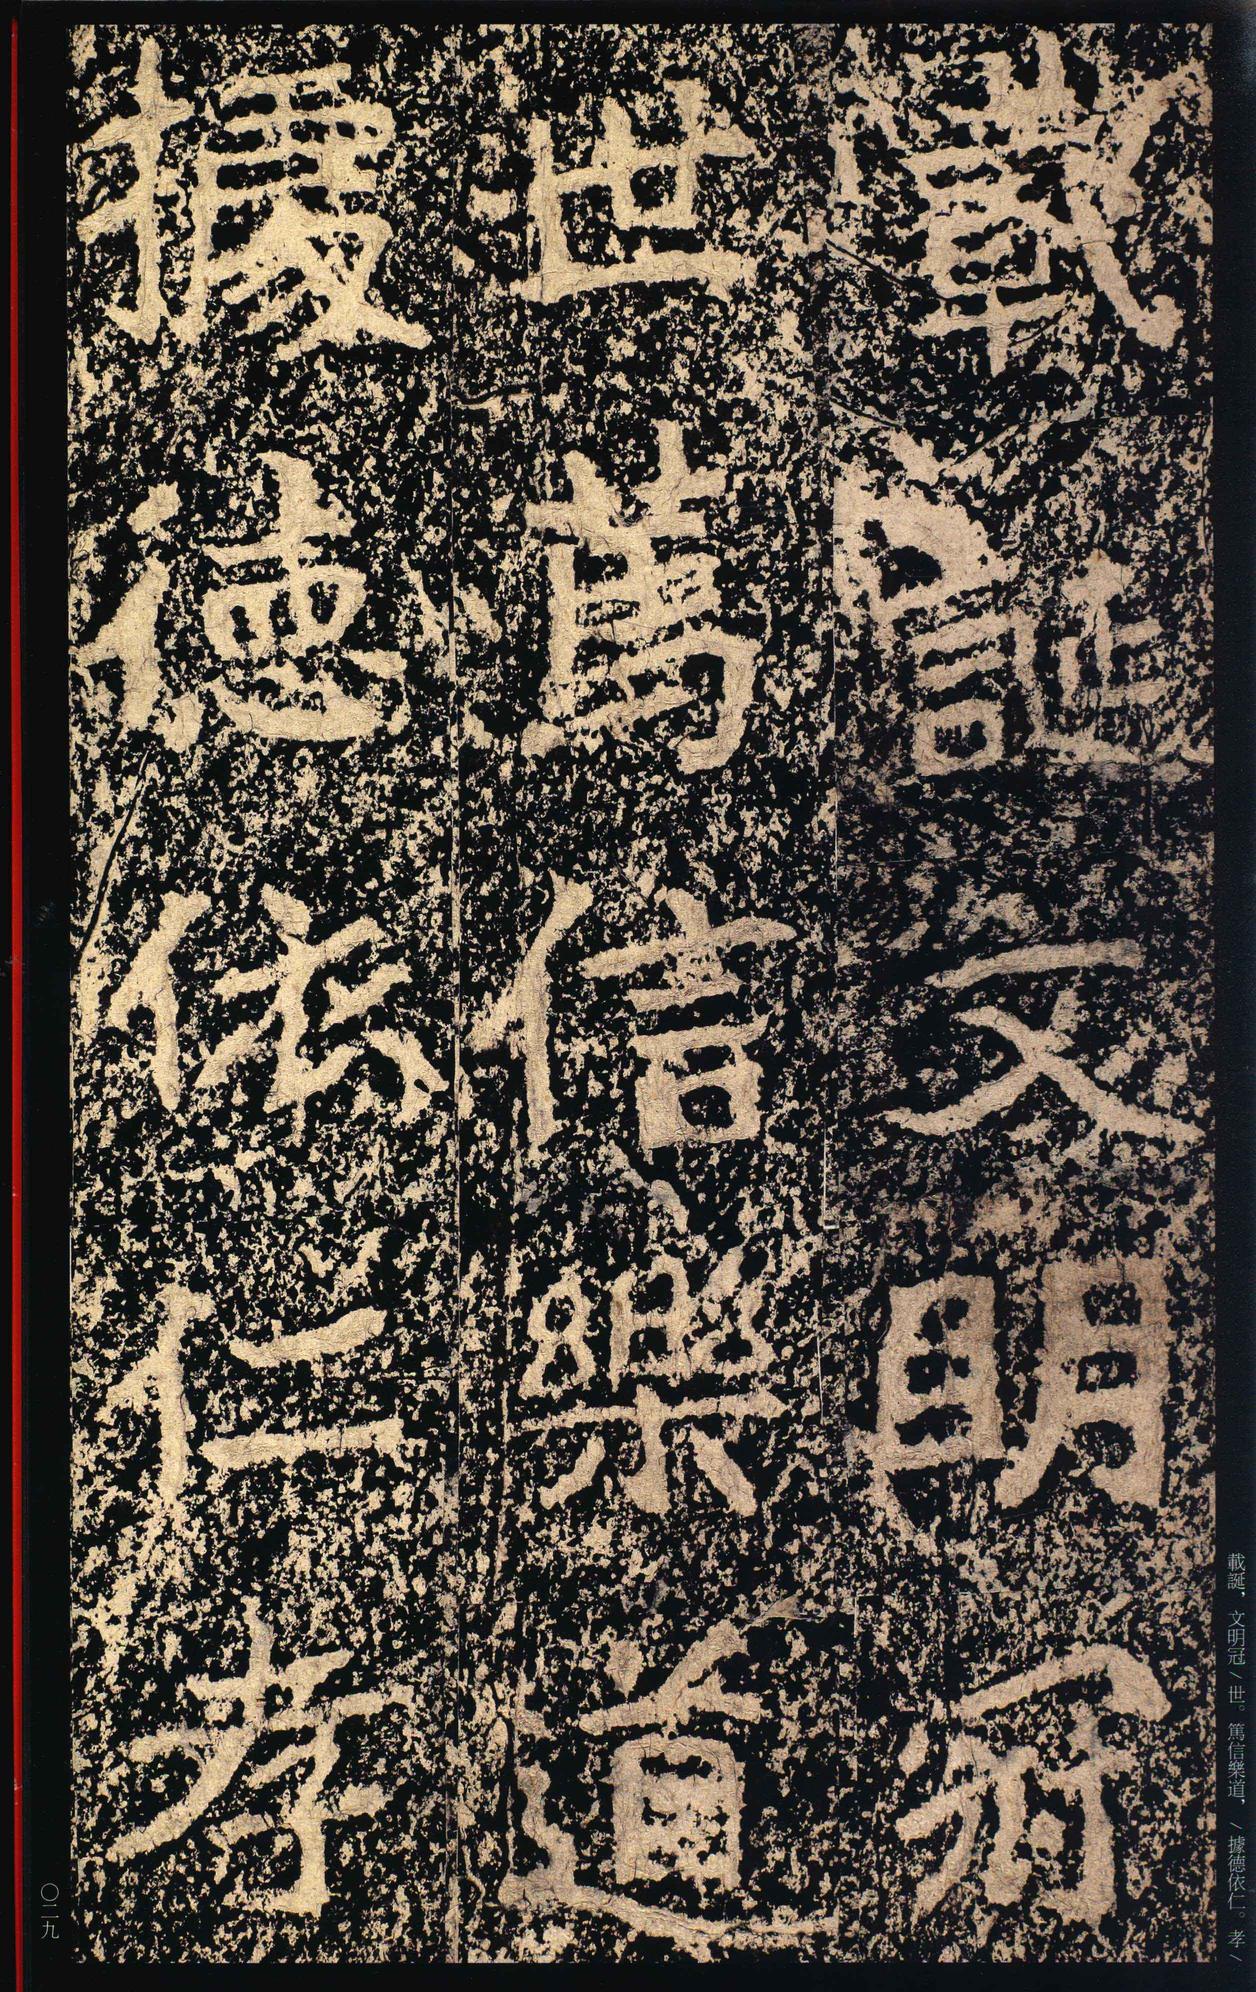 載誕文明冠
世篤信樂道
據德依仁孝
載誕，文明冠／世。篤信樂道，／據德依仁。孝／
〇二九